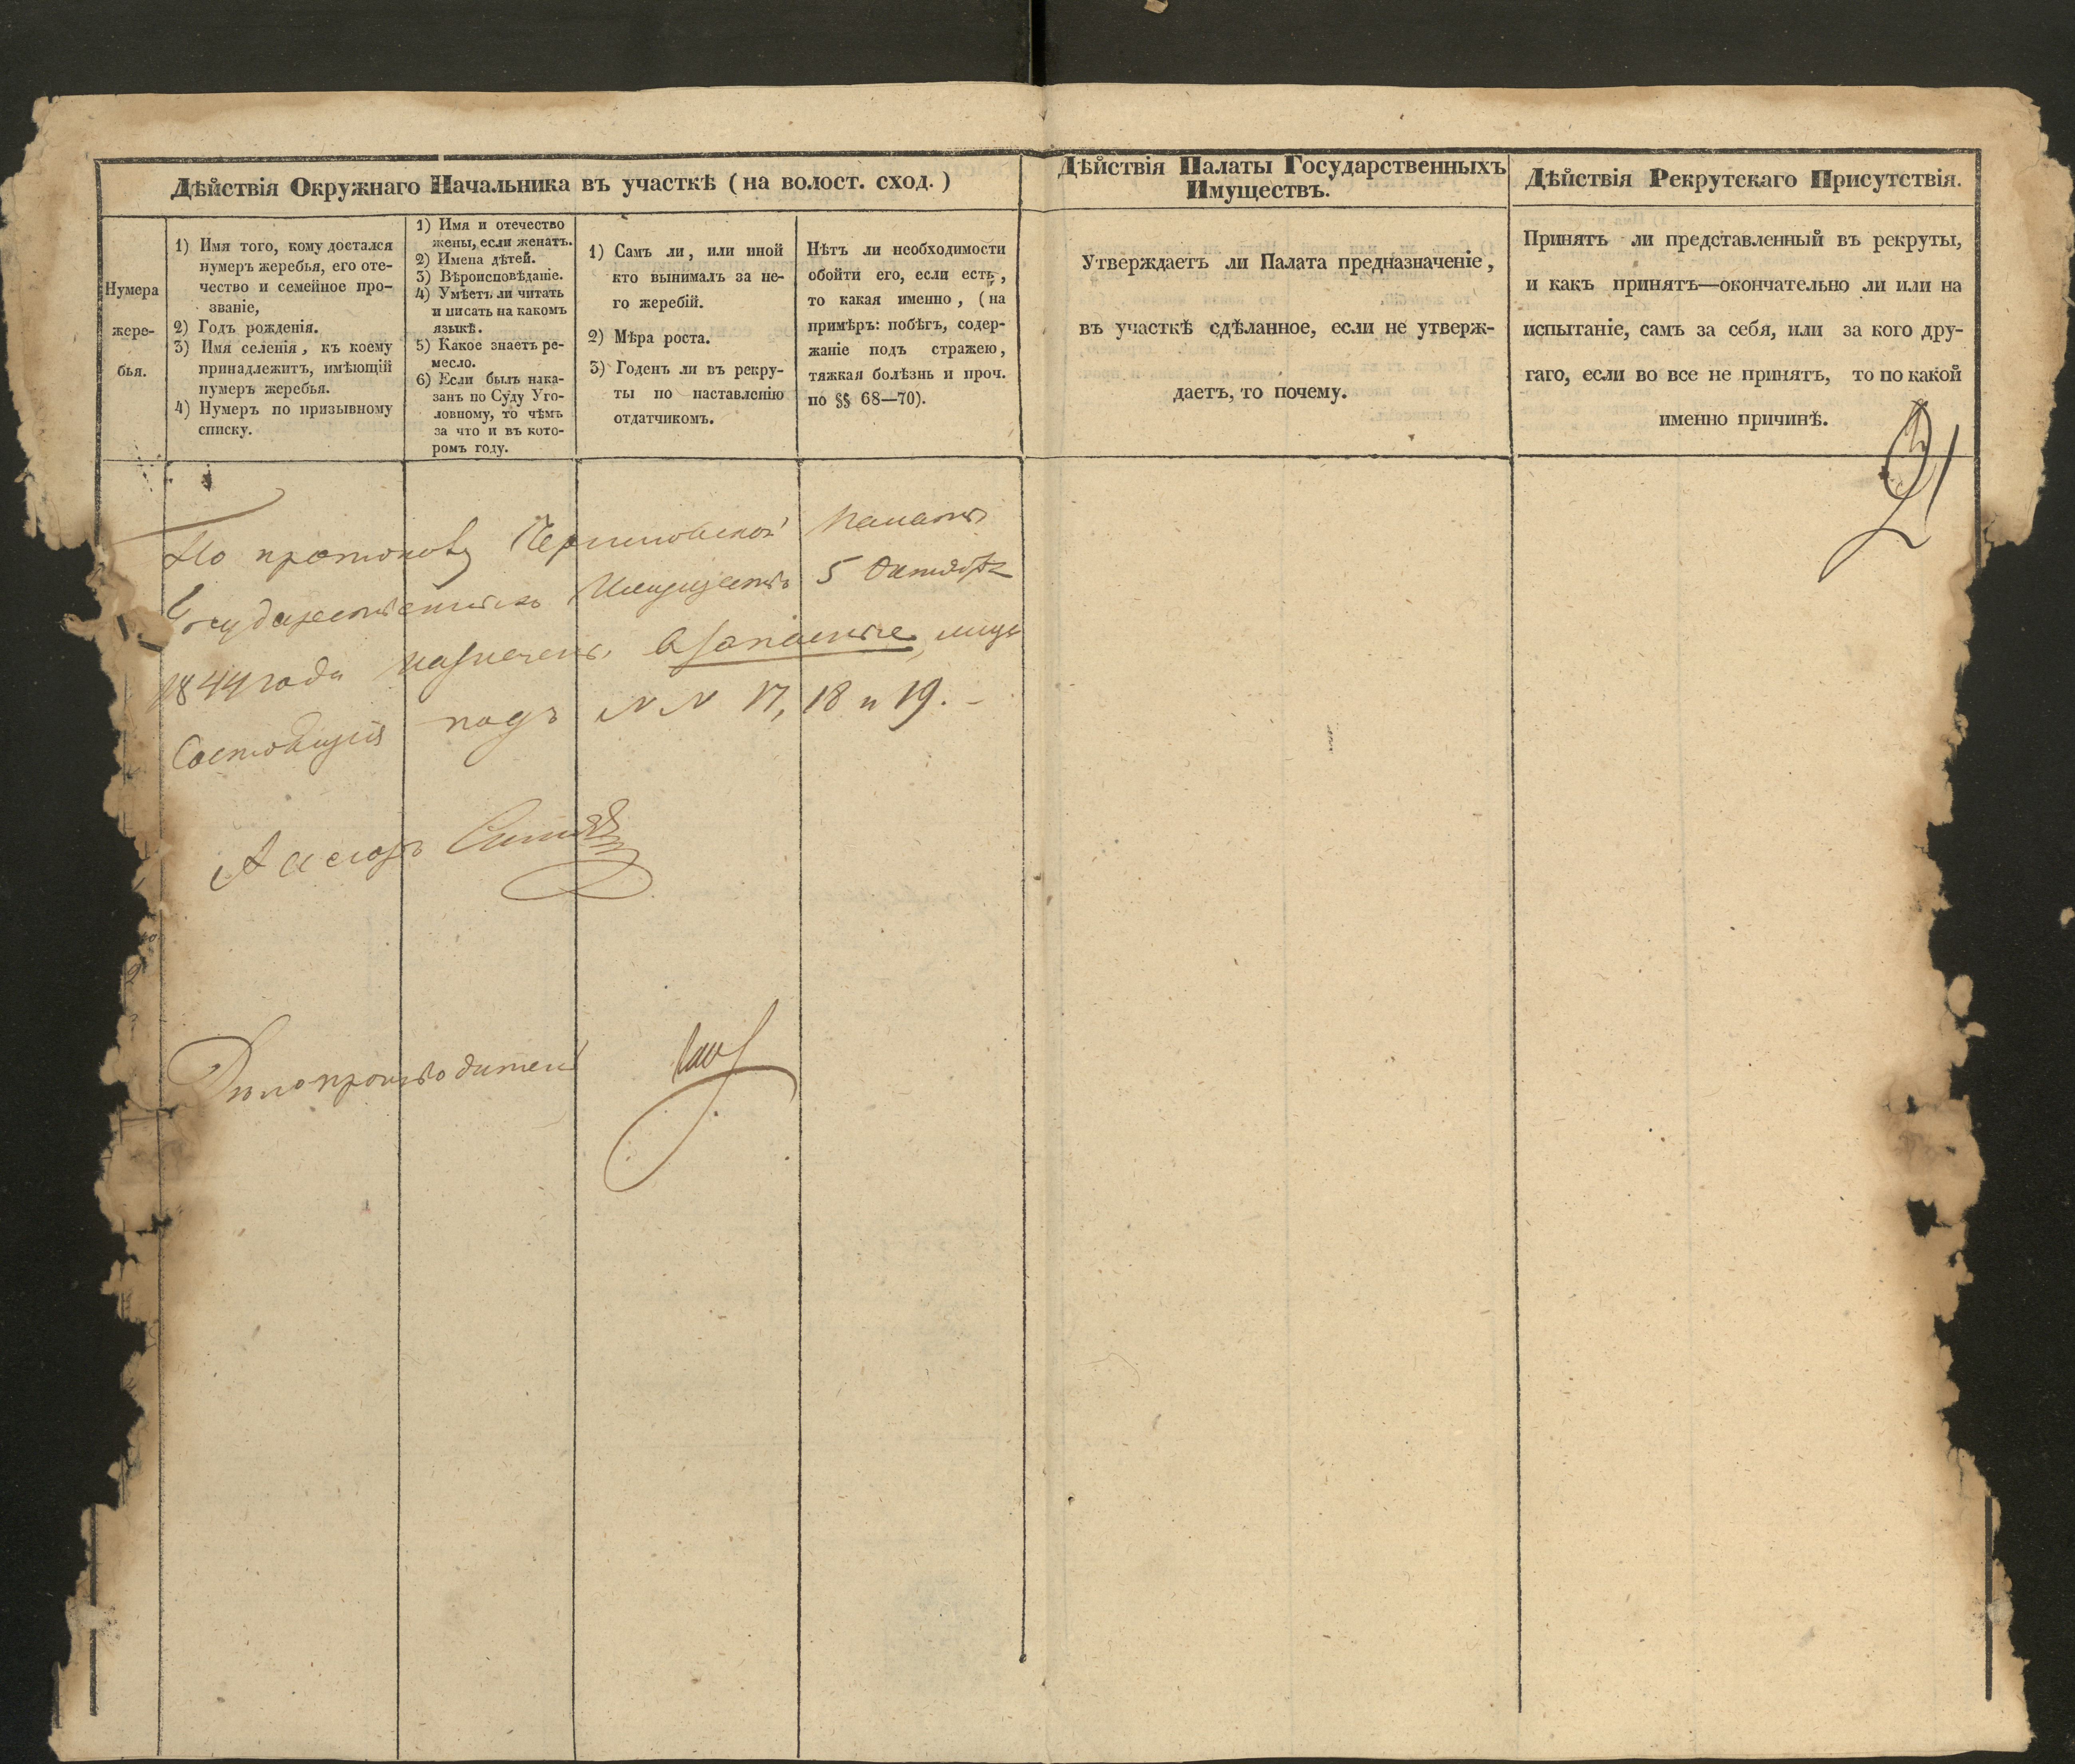 Дѣйствія Окружнаго Начальника въ участкѣ (на волост. сход.)
Нумера
жере-
бья.
1) Имя того, кому достался
нумеръ жеребья, его оте-
чество и семейное про-
званіе,
2) Годъ рожденія.
3) Имя селенія, къ коему
принадлежитъ, имѣющій
нумеръ жеребья.
4) Нумеръ по призывному
списку.
1) Имя и отечество
жены, если женатъ.
2) Имена дѣтей.
3) Вѣроисповѣданіе.
4) Умѣетъ ли читать
и писать на какомъ
языкѣ.
5) Какое знаетъ ре-
месло.
6) Если былъ нака-
занъ по Суду Уго-
ловному, то чѣмъ
за что и въ кото-
ромъ году.
1) Самъ ли, или иной
кто вынималъ за не-
го жеребій.
2) Мѣра роста.
3) Годенъ ли въ рекру-
ты по наставленію
отдатчикомъ.
Нѣтъ ли необходимости
обойти его, если есть,
то какая именно, (на
примѣръ: побѣгъ, содер-
жаніе подъ стражею,
тяжкая болѣзнь и проч.
по §§ 68—70).
Дѣйствія Палаты Государственныхъ
Имуществъ.
Утверждаетъ ли Палата предназначеніе,
въ участкѣ сдѣланное, если не утверж-
даетъ, то почему.
Дѣйствія Рекрутскаго Присутствія.
Принятъ ли представленный въ рекруты,
и какъ принятъ—окончательно ли или на
испытаніе, самъ за себя, или за кого дру-
гаго, если во все не принятъ, то по какой
именно причинѣ.
21
По протоколу Черниговской Палаты
Государственныхъ Имуществъ 5 Октября
1844 года назначены въ запасные, лица
Состоящія подъ N N 17, 18 и 19. –
Ассесоръ
Дѣлопроизводитель